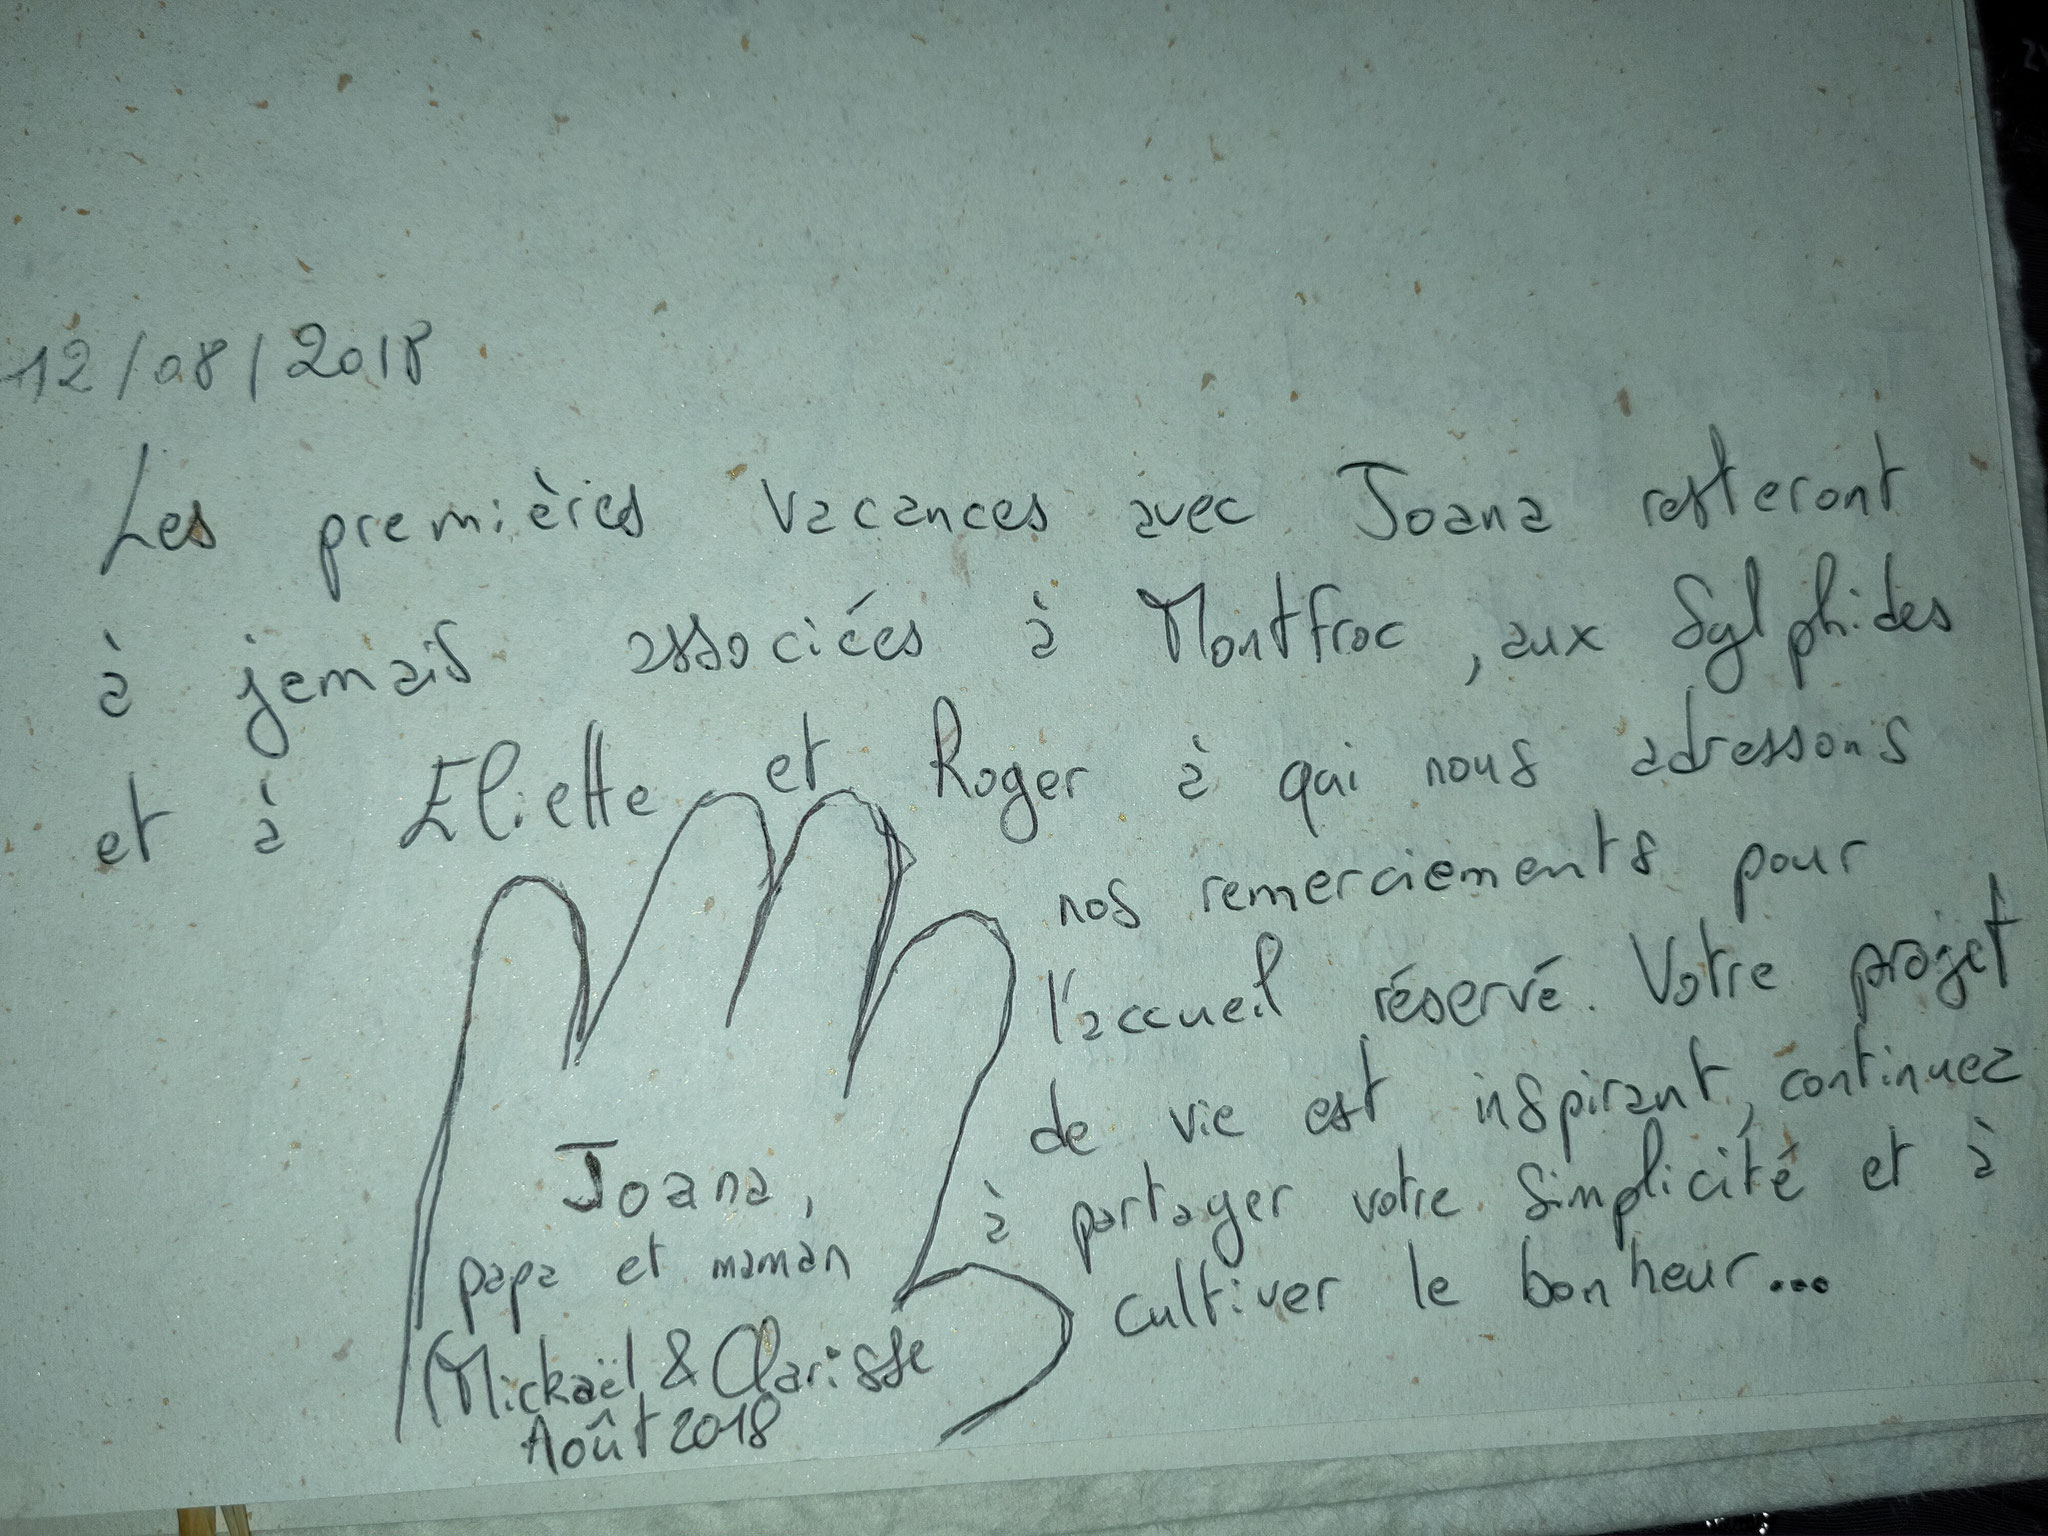 12/08/2018
Les premières vacances avec Joana resteront
à jamais associées à Montfroc, aux Sylphides
et à Eliette et Roger à qui nous adressons
nos remerciements pour
l'accueil réservé. Votre projet
de vie est inspirant, continuez
à partager votre simplicité et à
cultiver le bonheur...
Joana,
papa et maman
Mickaël & Clarisse
Août 2018